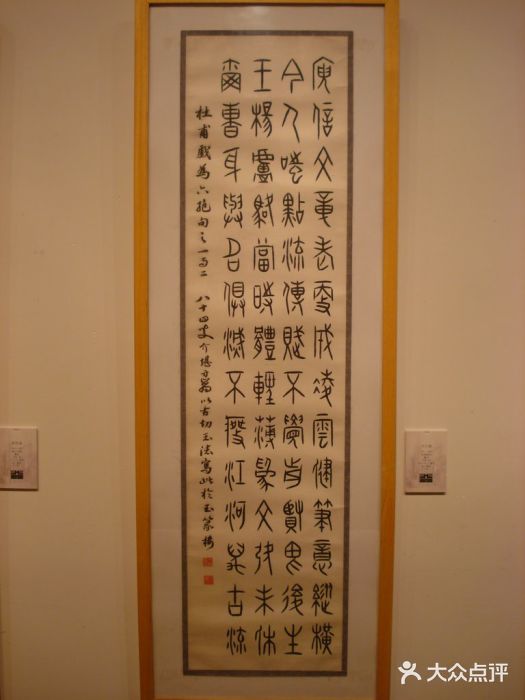 庾信文章老更成凌雲健筆意縱橫
今人嗤點流傳賦不覺前賢畏後生
王楊盧駱當時體輕薄為文哂未休
爾曹身與名俱滅不廢江河萬古流
杜甫戲為六絕句之一与二 八十四叟介堪方以古切玉法寫此於玉篆樓
大众点评